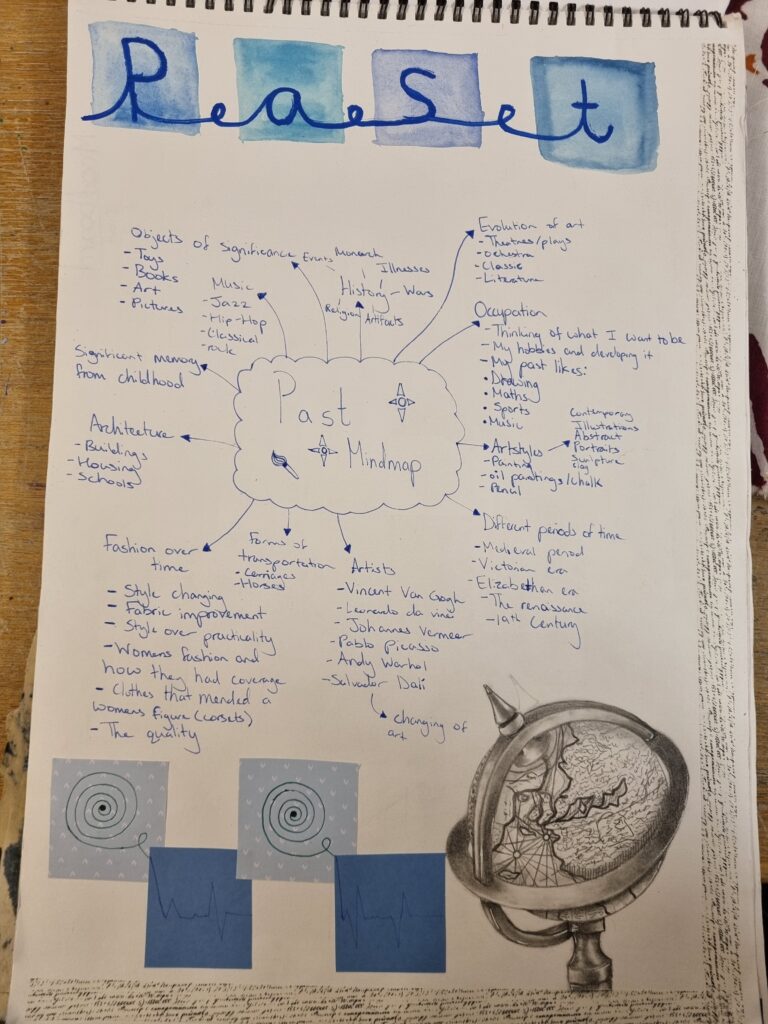 Past
Objects of significance
- Toys
- Books
- Art
- Pictures
Music
- Jazz
- Hip-Hop
- Classical
- rock
Events
Monarch
Illnesses
History - Wars
Religion
Artifacts
Evolution of art
- Theatres/plays
- Orchestra
- Classic
- Literature
Occupation
- Thinking of what I want to be
- My hobbies and developing it
- My past likes:
• Drawing
• Maths
• Sports
• Music
Significant memory
from childhood
Architecture
- Buildings
- Housing
- Schools
Past
Mindmap
Artstyles
- Painting
- oil paintings/chalk
- Pencil
Contemporary
Illustrations
Abstract
Portraits
Sculpture
Clay
Different periods of time
- Medieval period
- Victorian era
- Elizabethan era
- The renaissance
- 19th Century
Fashion over
time
- Style changing
- Fabric improvement
- Style over practicality
- Womens fashion and
how they had coverage
- Clothes that mended a
womens figure (corsets)
- The quality
Forms of
transportation
- Carriages
- Horses
Artists
- Vincent Van Gogh
- Leonardo da vinci
- Johannes Vermeer
- Pablo Picasso
- Andy Warhol
- Salvador Dali
changing of
art